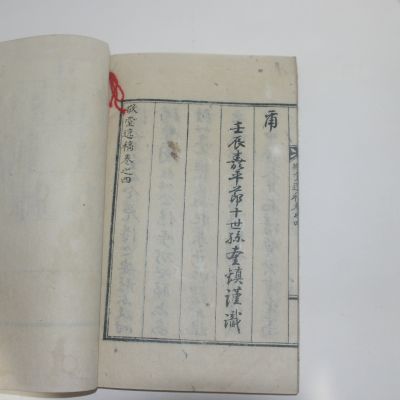 甫
壬辰嘉平節十世孫奎鎮謹識
敬堂遺稿卷之四